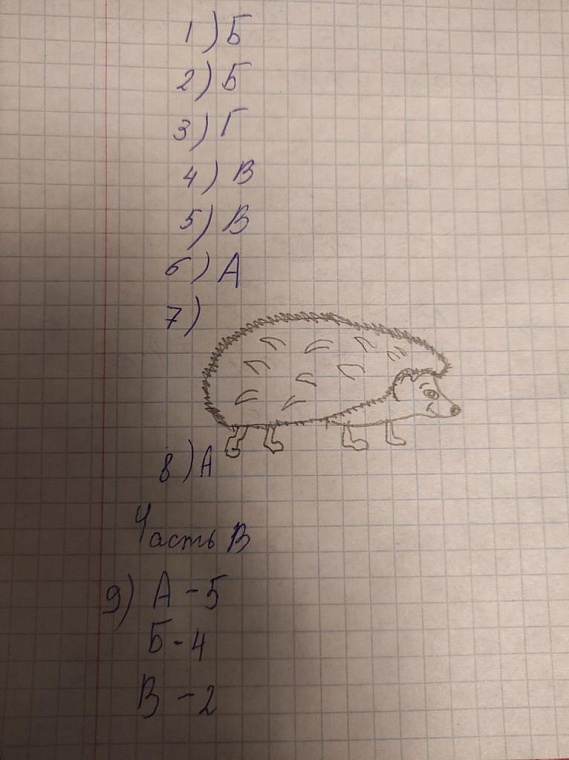 1) Б
2) Б
3) Г
4) В
5) В
6) А
7)
8) А
Часть В
9) А - 5
Б - 4
В - 2